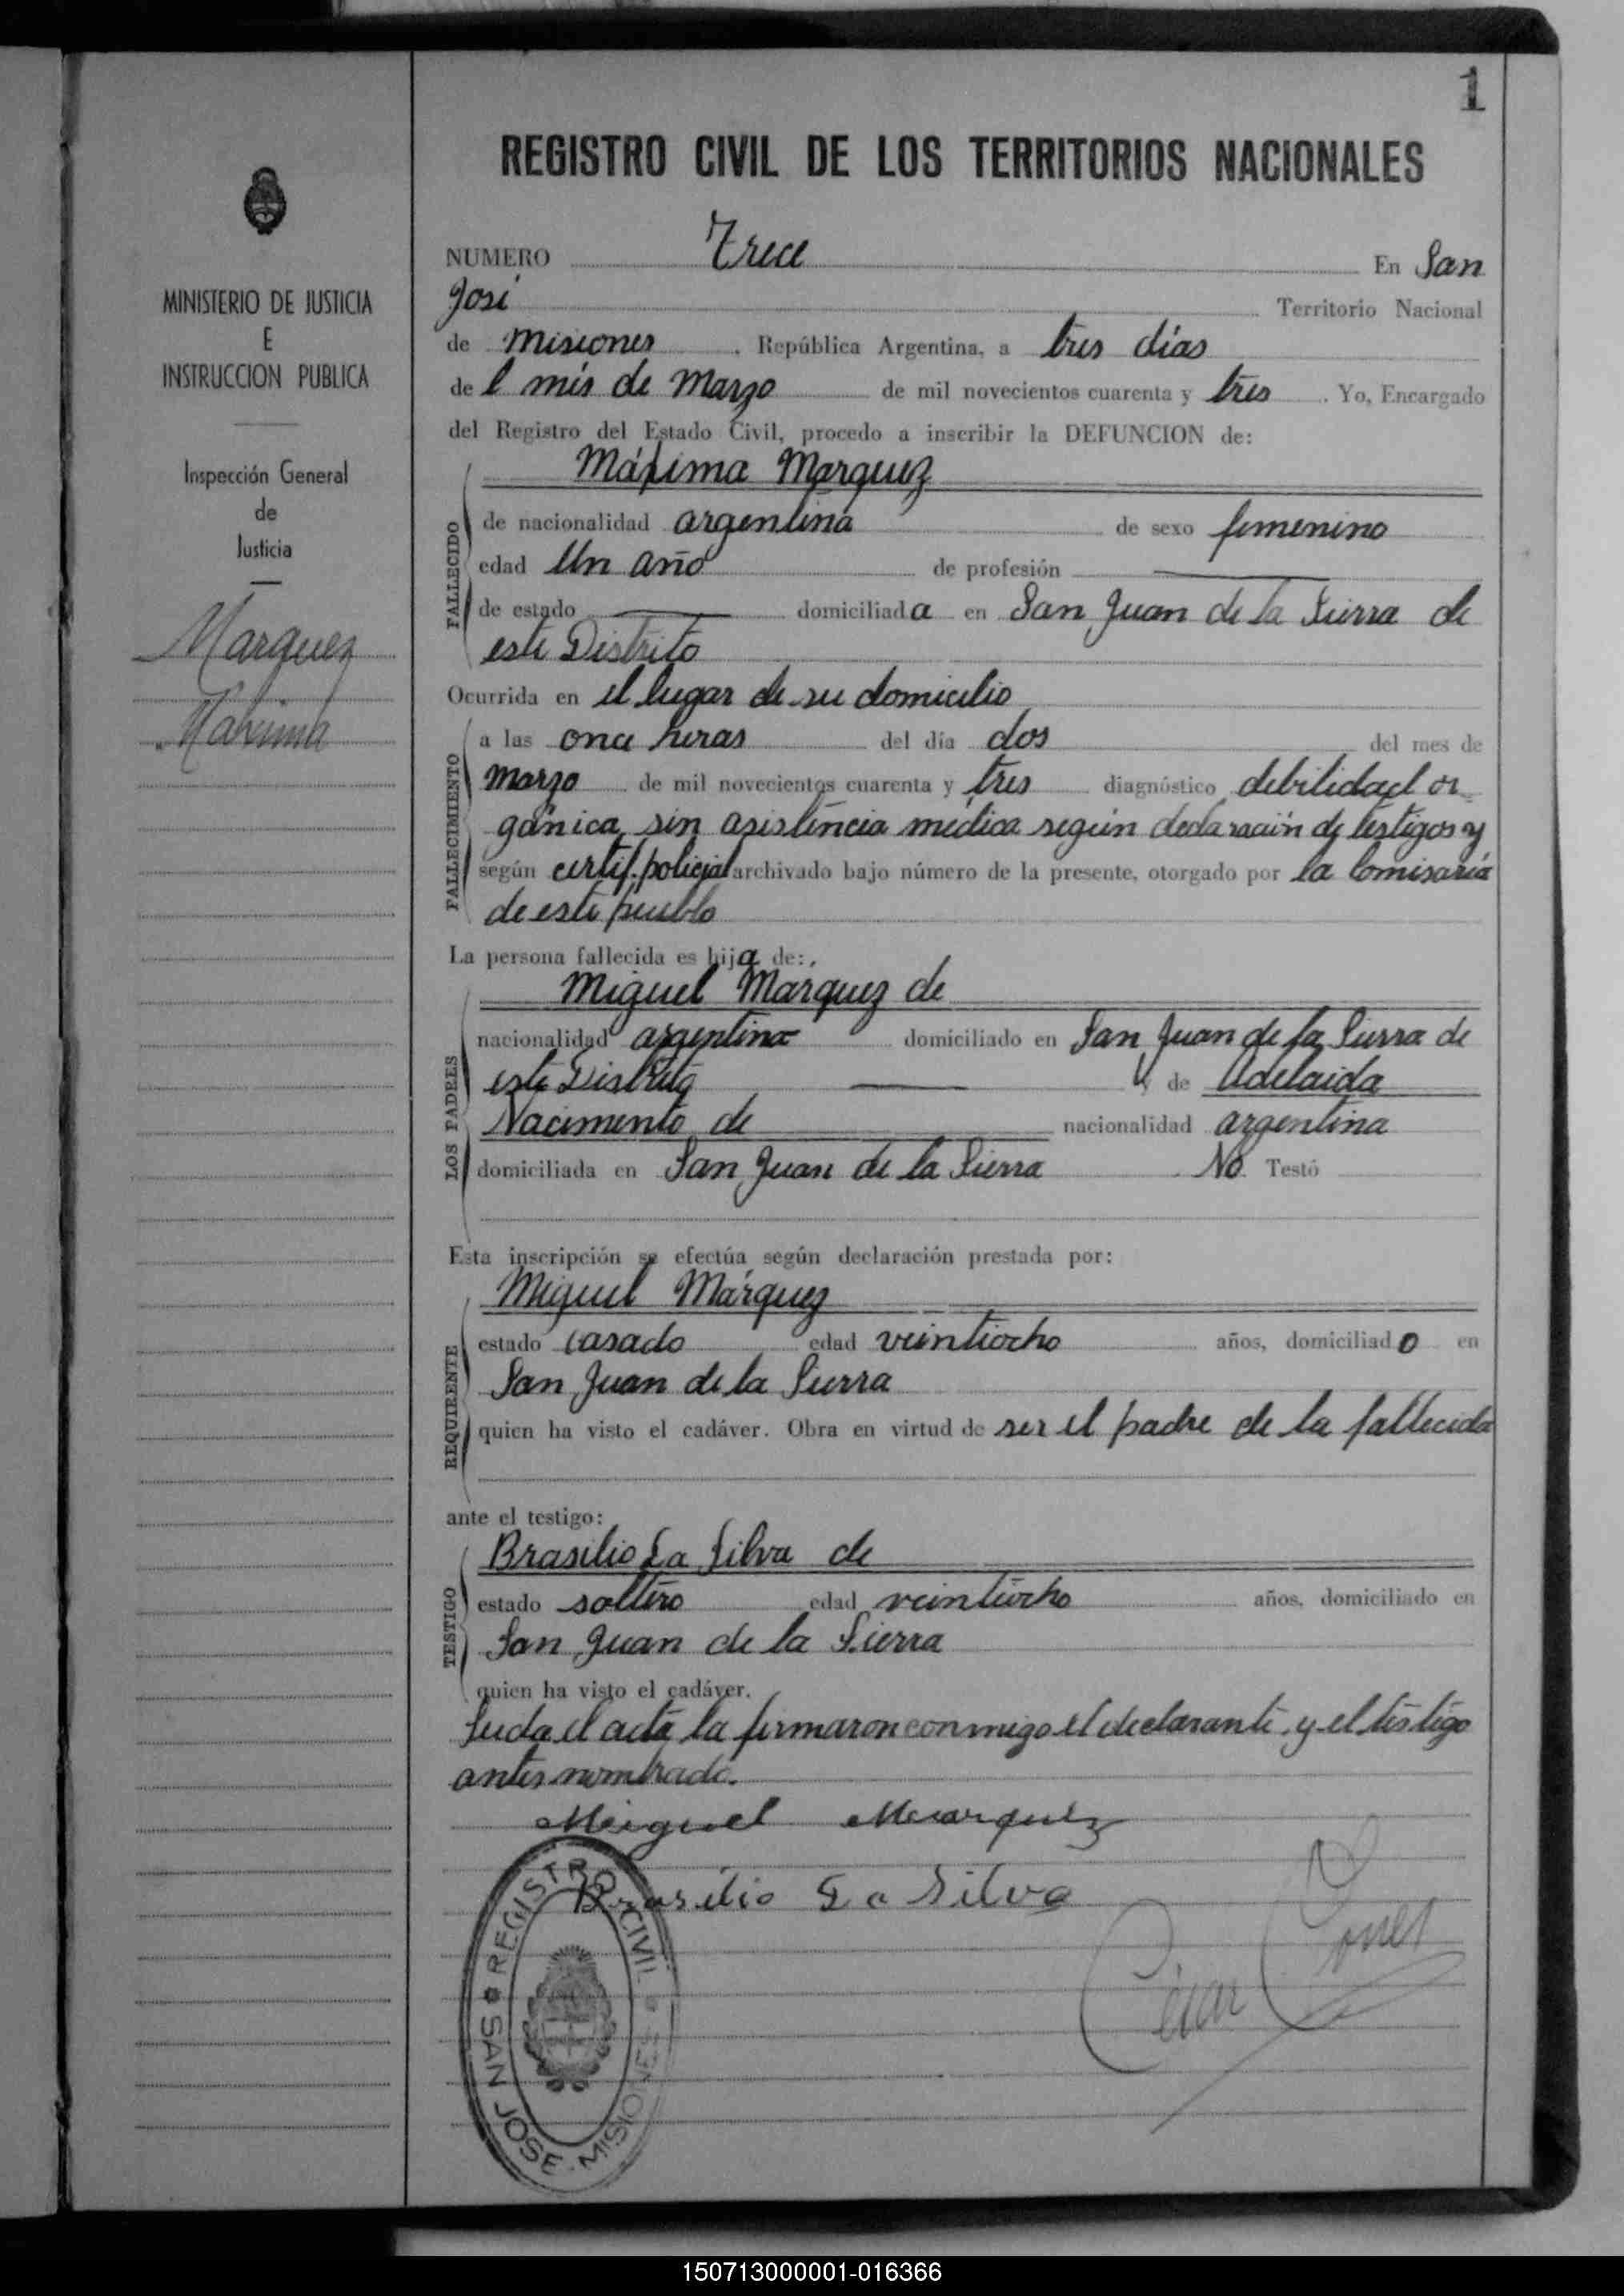 1
REGISTRO CIVIL DE LOS TERRITORIOS NACIONALES
MINISTERIO DE JUSTICIA
E
INSTRUCCION PUBLICA
Inspección General
de
Justicia
Marquez
Máxima
NUMERO Trece En San
José Territorio Nacional
de Misiones, República Argentina, a tres días
del mes de Marzo de mil novecientos cuarenta y tres. Yo, Encargado
del Registro del Estado Civil, procedo a inscribir la DEFUNCION de:
Máxima Marquez
FALLECIDO
de nacionalidad argentina de sexo femenino
edad Un año de profesión
de estado domiciliada en San Juan de la Sierra de
este Distrito
Ocurrida en el lugar de su domicilio
FALLECIMIENTO
a las once horas del día dos del mes de
marzo de mil novecientos cuarenta y tres diagnóstico debilidad or
gánica, sin asistencia médica según declaración de testigos y
según certif. policial archivado bajo número de la presente, otorgado por la Comisaría
de este pueblo
La persona fallecida es hija de:
LOS PADRES
Miguel Márquez de
nacionalidad argentina domiciliado en San Juan de la Sierra de
este Distrito y de Adelaida
Nacimento de nacionalidad argentina
domiciliada en San Juan de la Sierra No Testó
Esta inscripción se efectúa según declaración prestada por:
REQUIRENTE
Miguel Márquez
estado casado edad veintiocho años, domiciliado en
San Juan de la Sierra
quien ha visto el cadáver. Obra en virtud de ser el padre de la fallecida
ante el testigo:
TESTIGO
Brasilio Da Silva de
estado soltero edad veintiocho años, domiciliado en
San Juan de la Sierra
quien ha visto el cadáver.
Leida el acta la firmaron conmigo el declarante y el testigo
antes nombrado.
Meiguel Mearquez
Brasilio Da Silva
Cesar
REGISTRO CIVIL
SAN JOSE - MISIONES
150713000001-016366